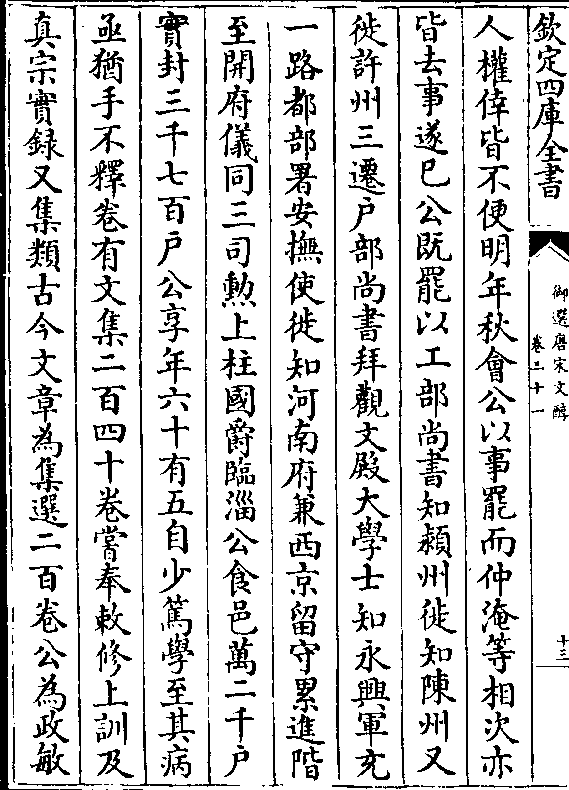 欽定四庫全書
御選唐宋文醇
卷二十一
十三
人權倖皆不便明年秋會公以事罷而仲淹等相次亦
皆去事遂已公既罷以工部尚書知潁州徙知陳州又
徙許州三遷户部尚書拜觀文殿大學士知永興軍充
一路都部署安撫使徙知河南府兼西京留守累進階
至開府儀同三司勲上柱國爵臨淄公食邑萬二千户
實封三千七百户公享年六十有五自少篤學至其病
亟猶手不釋卷有文集二百四十卷嘗奉敕修上訓及
真宗實録又集類古今文章為集選二百卷公為政敏